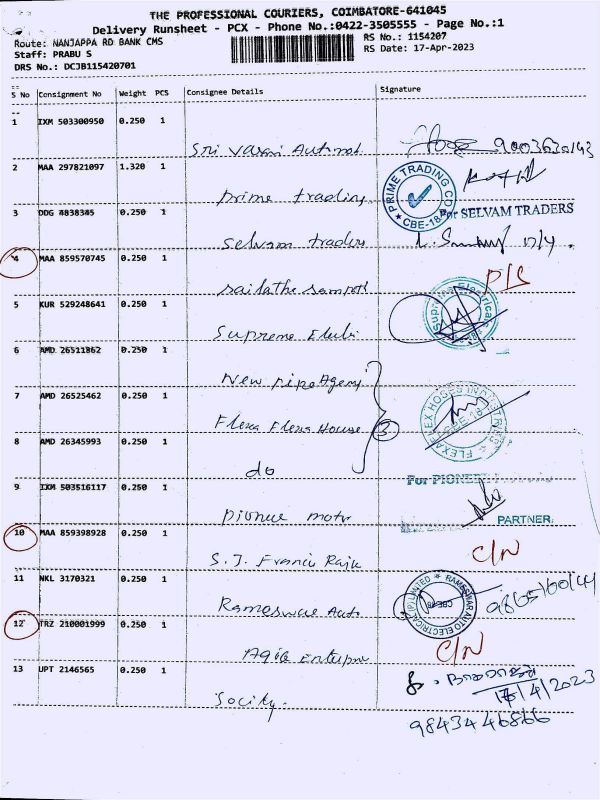 THE PROFESSIONAL COURIERS, COIMBATORE-641045
Delivery Runsheet - PCX - Phone No.:0422-3505555 - Page No.:1
Route: NANJAPPA RD BANK CMS
Staff: PRABU S
DRS No.: DCJB115420701
RS No.: 1154207
RS Date: 17-Apr-2023
S No Consignment No Weight PCS Consignee Details Signature
1 IXM 503300950 0.250 1
Sri Varai
2 MAA 297821097 1.320 1
prime trading
PRIME TRADING CO
CBE-18
3 DDG 4838345 0.250 1
For SELVAM TRADERS
Selvam traders
17/4.
4 MAA 859570745 0.250 1
D/S
5 KUR 529248641 0.250 1
Supreme
Supreme Electricals
6 AMD 26511862 0.250 1
New pipe Agency
7 AMD 26525462 0.250 1
Flexa Flexa House
3
FLEXAFLEX HOSES INDUSTRIES
CBE-18
8 AMD 26345993 0.250 1
do
9 IXM 503516117 0.250 1
For PIONEER
pioneer motor
PARTNER
10 MAA 859398928 0.250 1
C/N
S.J. Francis Raja
11 NKL 3170321 0.250 1
Rameswar Auto
RAMESWAR AUTO ELECTRICAL (P) LIMITED
CBE-18
12 TRZ 210001999 0.250 1
C/N
Enterprise
13 UPT 2146565 0.250 1
17/4/2023
Socity.
9843446866